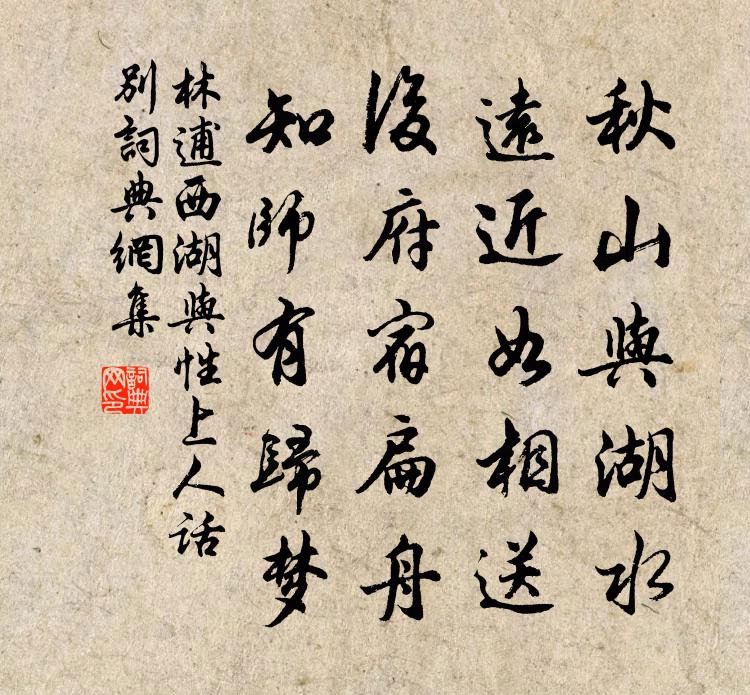 秋山與湖水
遠近如相送
後府宿扁舟
知師有歸梦
林逋西湖與性上人話
別詞典網集
詞典
网印